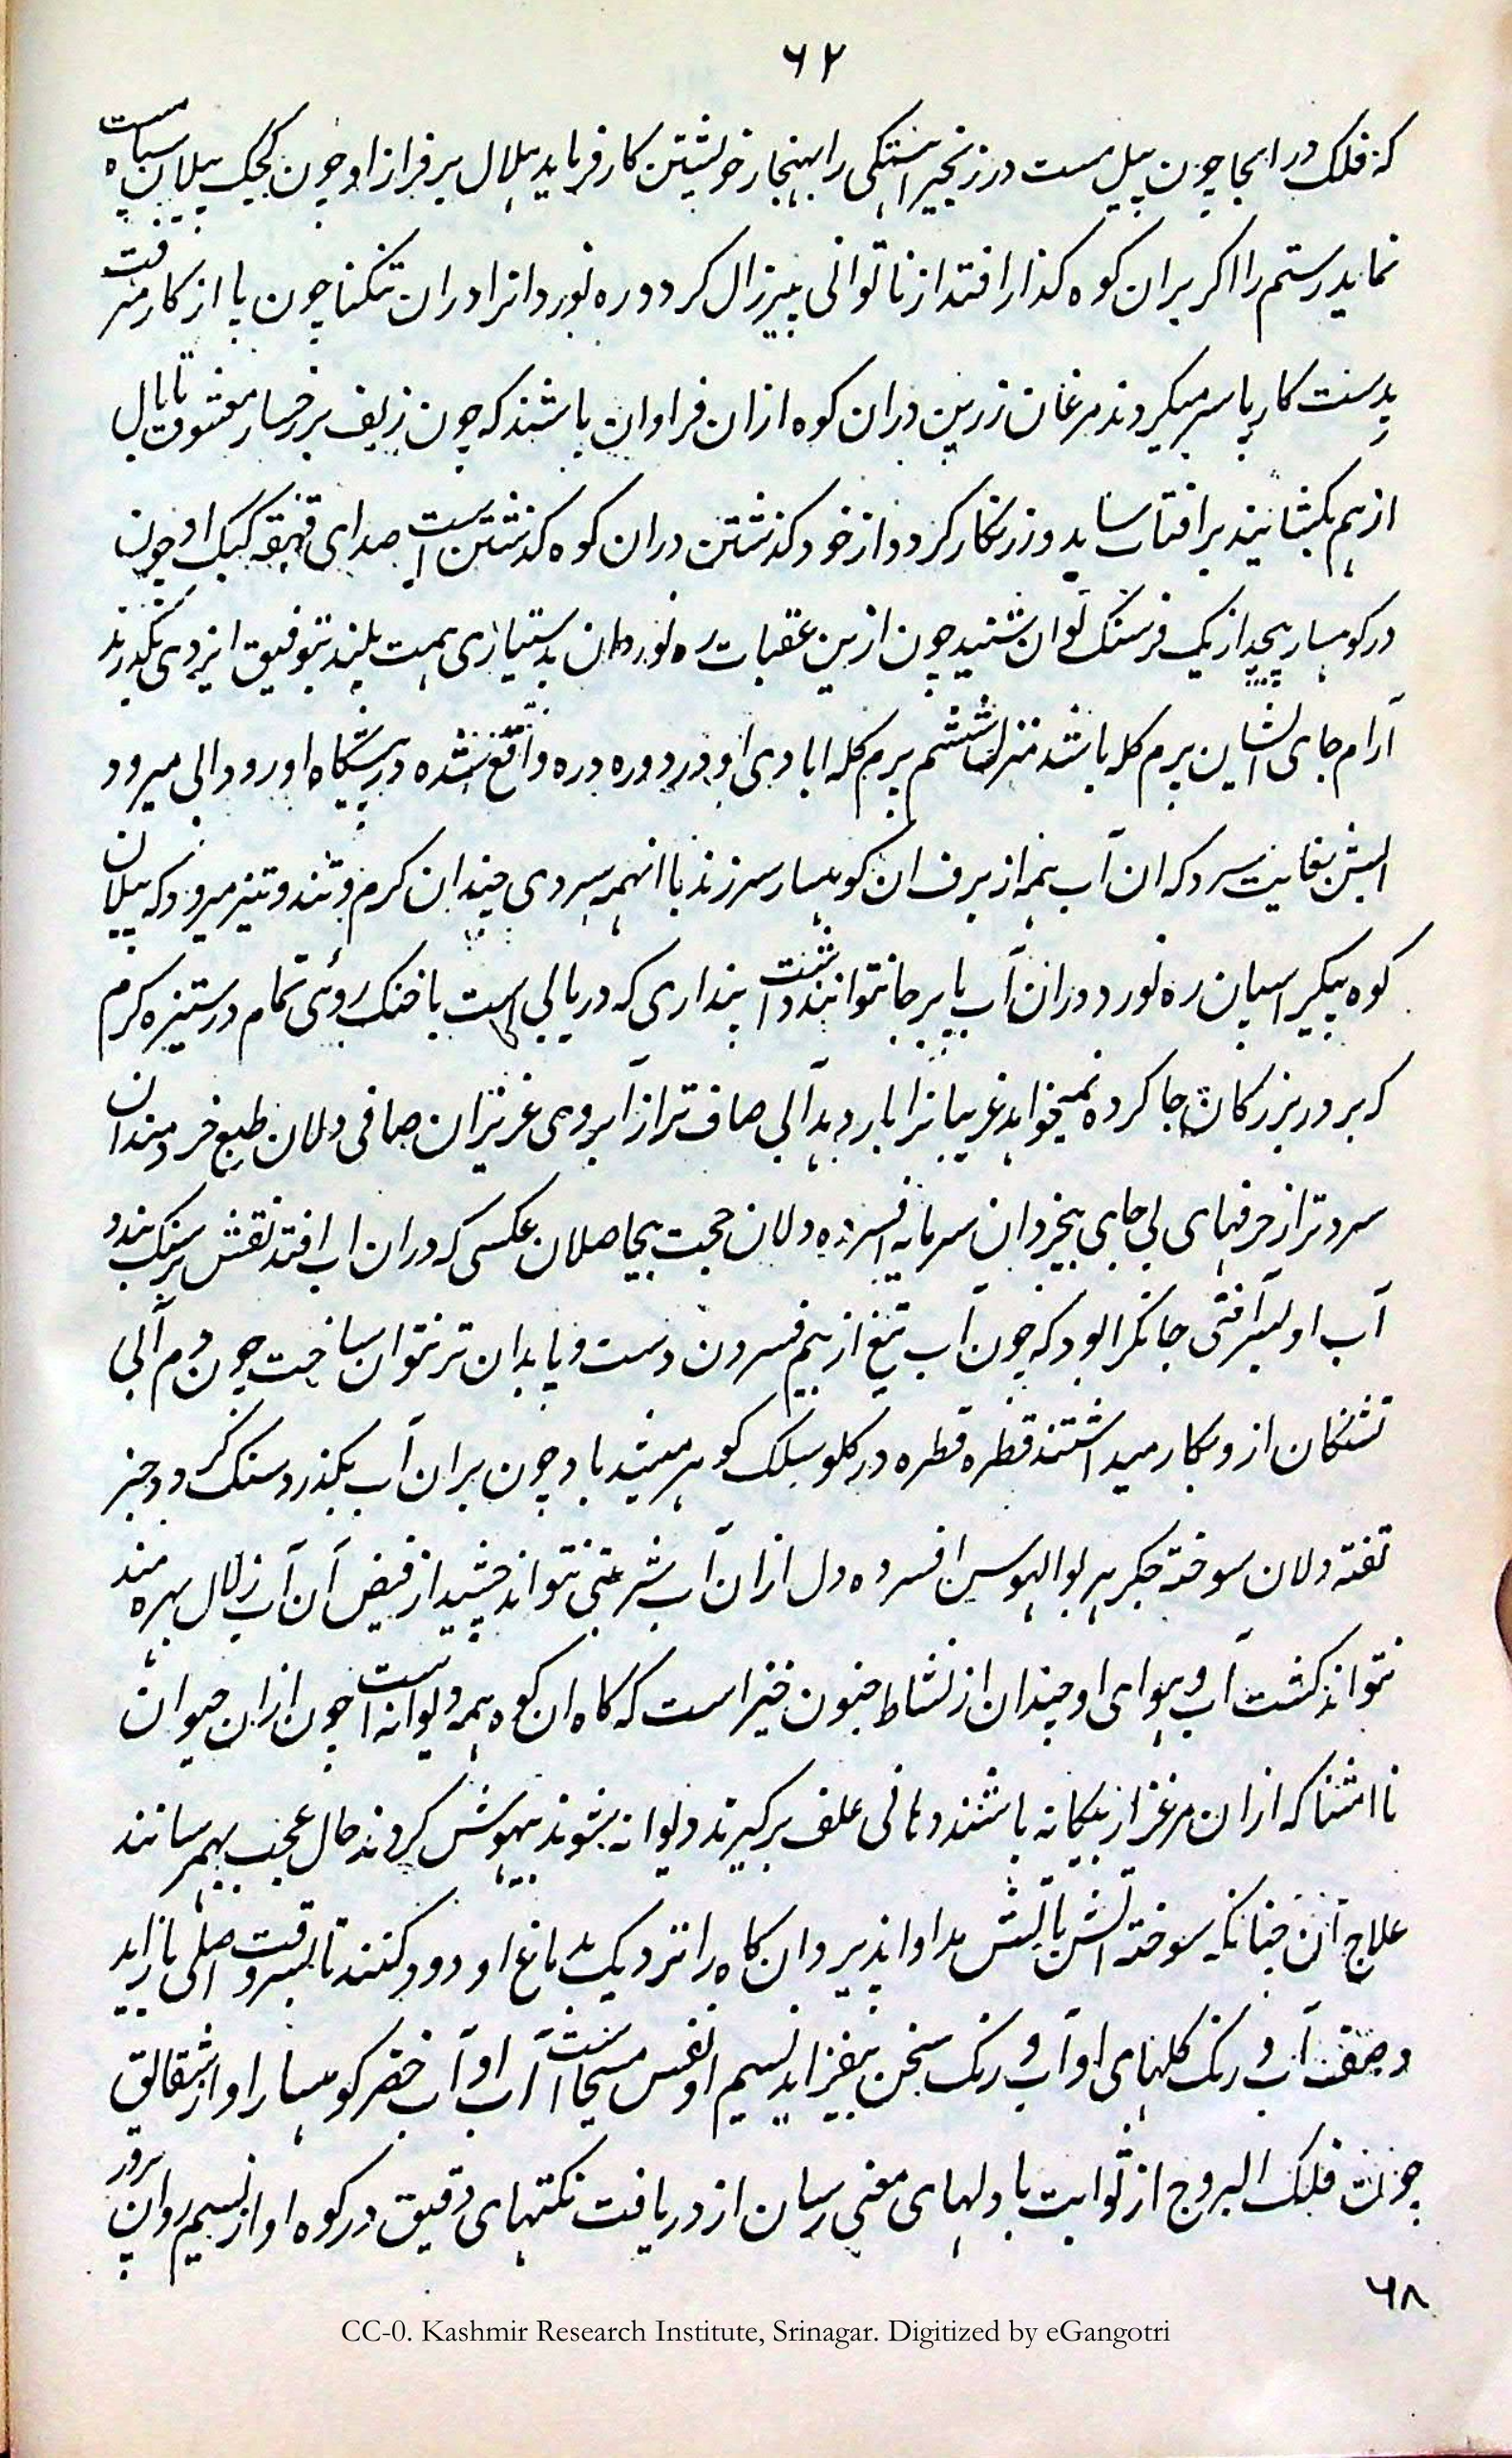 ۶۲
که فلک در انجا چون پیل مست در زنجیر اهستکی را بهنجار خویشتن کار فرماید هلال بر فراز او چون کجک پیلان سیاه مست
نماید رستم را اکر بران کوه کذار افتد از ناتوانی پیر زال کردد و ره نوردانرا دران تنکنا چون پا از کار رفت
بدست کار پا سر میکیردند مرغان زرین دران کوه ازان فراوان باشند که چون زلف بر رخسار معشوق تا بال
از هم بکشایند بر افتاب ساید و زرنکار کردد از خود کذشتن دران کوه کذشتن است صدای قهقهه کبک او چون
در کوهسار پیچد از یک فرسنک توان شنید چون ازین عقبات ره نوردان بدستیاری همت بلند بتوفیق ایزدی بکذرند
آرام جای ایشان پرم کله باشد منزل ششم پرم کله ابادی او در دوره دره واقع شده در پیشکاه او رودابی میرود
ابش بغایت سرد که ان آب همه از برف ان کوهسار سر زند با انهمه سردی چندان کرم و تند و تیز میرود که پیلان
کوه پیکر اسپان ره نورد دران آب پا بر جا نتوانند داشت پنداری که دریا ابی است با خنک روئی تمام در ستیزه کرم
که بر در بزرکان جا کرده نمیخواهد غریبانرا بار دهد آبی صاف تر از آبروی عزیزان صافی دلان طبع خردمندان
سرد تر از حرفهای بی جای بیخردان سرمایه افسرده دلان حجت بیحاصلان عکسی که دران اب افتد نقش بر سنک بندد
آب او بسر آفتی جانکزا بود که چون آب تیغ از بیم فسردن دست و پا بدان تر نتوان ساخت چون دم آبی
تشنکان ازو بکار میداشتند قطره قطره در کلو سلک کوهر میشد باد چون بران آب بکذرد سنک کردد جز
تفته دلان سوخته جکر هر بوالهوس افسرده دل ازان آب شربتی نتواند چشید از فیض آن آب زلال بهره مند
نتواند کشت آب و هوای او چندان از نشاط جنون خیز است که کاه ان کوه همه دیوانه است چون ازان حیوان
نا اشنا که ازان مرغزار بیکانه باشند دهانی علف برکیرند دیوانه بشوند بیهوش کردند حال عجب بهمرسانند
علاج آن چنانکه سوخته اتش باتش مداوا پذیرد ان کاه را نزدیک بدماغ او دود کنند تا بسر وقت اصلی باز اید
وصف آب و رنک کلهای او آب و رنک سخن بیفزاید نسیم او نفس مسیحا است آب او آب خضر کوهسار او از شقایق
چون فلک البروج از ثوابت با دلهای معنی رسان از دریافت نکتهای دقیق در کوه او از نسیم روان پرور
۶۸
CC-0. Kashmir Research Institute, Srinagar. Digitized by eGangotri